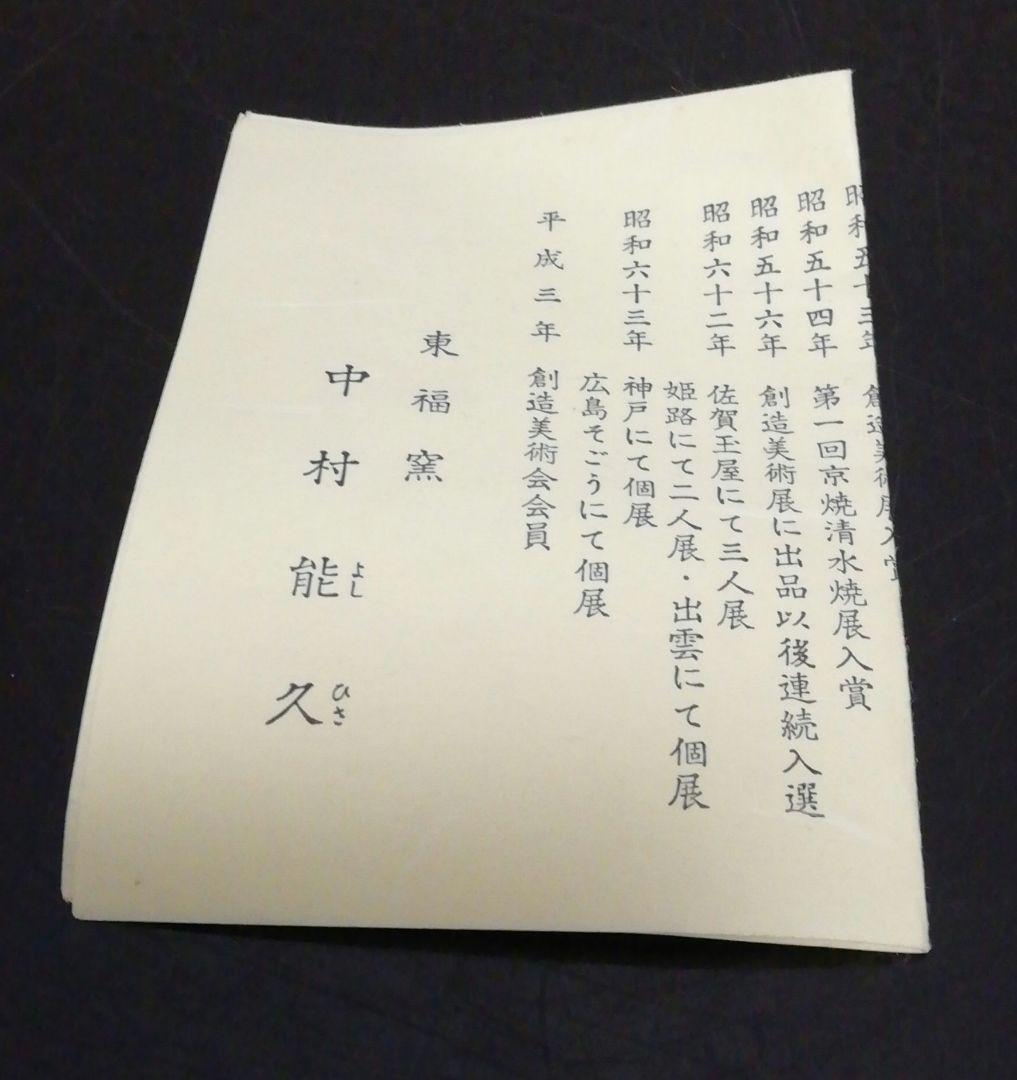 昭和五十三年 創造美術展入賞
昭和五十四年 第一回京焼清水焼展入賞
昭和五十六年 創造美術展に出品以後連続入選
昭和六十二年 佐賀玉屋にて三人展
姫路にて二人展・出雲にて個展
昭和六十三年 神戸にて個展
広島そごうにて個展
平成三年 創造美術会会員
東福窯
中村能久
よし ひさ